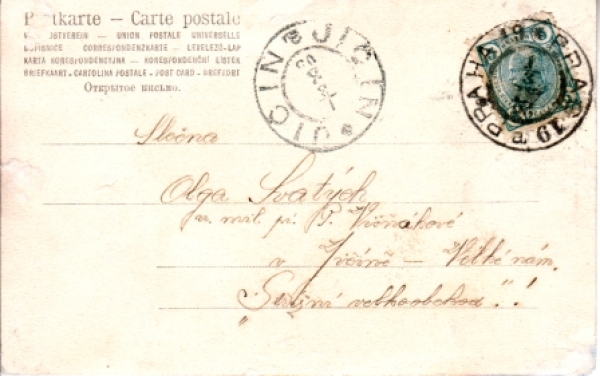 Postkarte – Carte postale
WELTPOSTVEREIN — UNION POSTALE UNIVERSELLE
DOPISNICE CORRESPONDENZKARTE — LEVELEZŐ-LAP
KARTA KORESPONDENCYJNA — KORESPONDENČNÍ LÍSTEK
BRIEFKAART - CARTOLINA POSTALE - POST CARD - BREFKORT
Открытое письмо.
JIČIN JIČIN
PRAHA 19 PRAG 19
Slečna
Olga Svatých
p.
v Jičíně — Velké nám.
velkoobchod"!